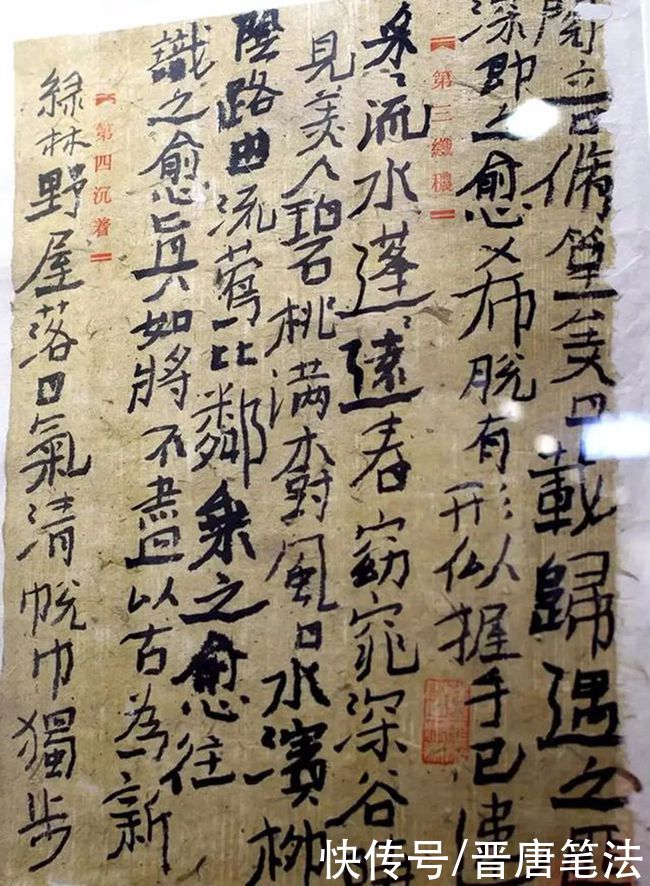 閱音脩篁美曰載歸遇之匪
深即之愈希脫有形似握手已違
第三纖穠
采〻流水蓬〻遠春窈窕深谷時
見美人碧桃满樹風日水濱柳
陰路曲流鶯比鄰乘之愈往
識之愈真如將不盡以古為新
第四沉着
綠林野屋落日氣清脫巾獨步
快传号/晋唐笔法